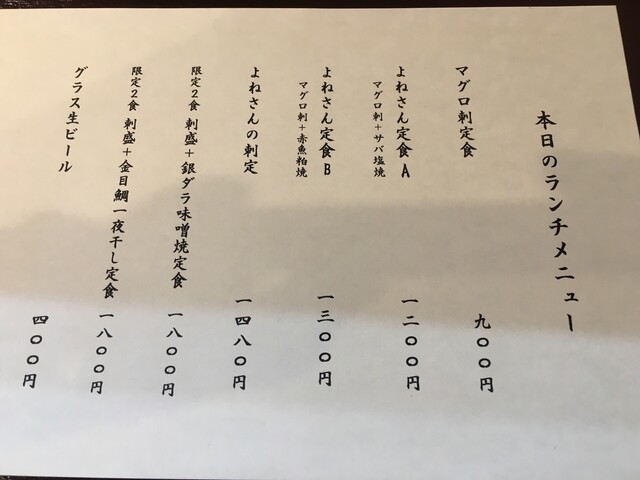 本日のランチメニュー
マグロ刺定食
九〇〇円
よねさん定食A
マグロ刺+サバ塩焼
一二〇〇円
よねさん定食B
マグロ刺+赤魚粕焼
一三〇〇円
よねさんの刺定
一四八〇円
限定2食 刺盛+銀ダラ味噌焼定食
一八〇〇円
限定2食 刺盛+金目鯛一夜干し定食
一八〇〇円
グラス生ビール
四〇〇円